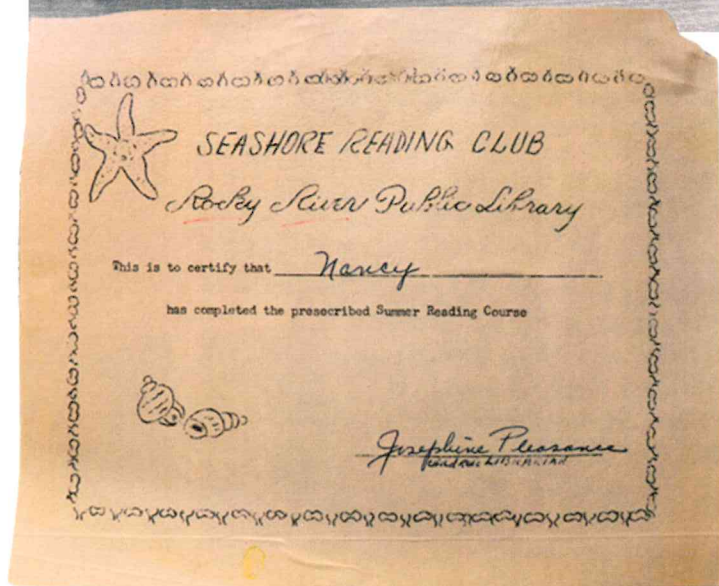 SEASHORE READING CLUB
Rocky River Public Library
This is to certify that Nancy
has completed the presecribed Summer Reading Course
Josephine Pleasance
LIBRARIAN